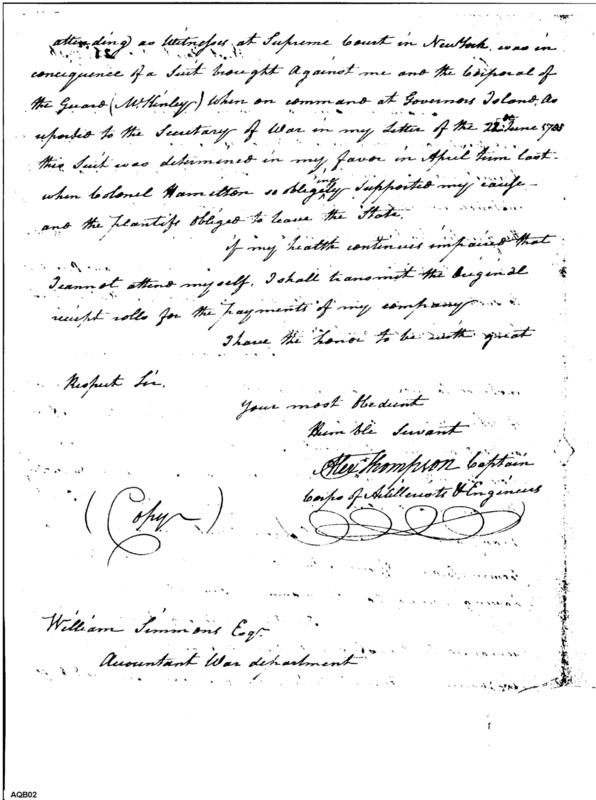 attending) as Witnesses at Supreme Court in New York, was in
concequence of a Suit brought Against me and the Corporal of
the Guard (McKinley) When on command at Governors Island, As
reported to the Secretary of War in my Letter of the 22th June
this Suit was determined in my favor in April term last
when Colonel Hamilton so obligingly Supported my cause
and the plantifs obliged to leave the State.
if my health continues impaired that
I cannot attend myself, I shall transmit the Original
receipt rolls for the payments of my company
I have the honor to be with great
Respect Sir.
Your most Obedient
Humble Servant
Alexr. Thompson Captain
Corps of Artillerists & Engineers
(Copy)
William Simmons Esqr.
Accountant War department
AQB02